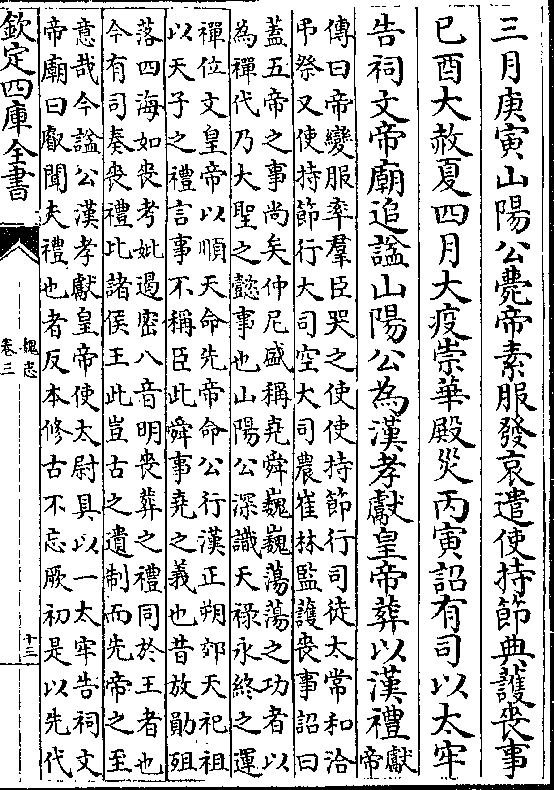 三月庚寅山陽公薨帝素服發哀遣使持節典護喪事
巳酉大赦夏四月大疫崇華殿災丙寅詔有司以太牢
告祠文帝廟追諡山陽公為漢孝獻皇帝葬以漢禮獻帝
傳曰帝變服率羣臣哭之使使持節行司徒太常和洽
弔祭又使持節行大司空大司農崔林監護喪事詔曰
蓋五帝之事尚矣仲尼盛稱堯舜巍巍蕩蕩之功者以
為禪代乃大聖之懿事也山陽公深識天禄永終之運
禪位文皇帝以順天命先帝命公行漢正朔郊天祀祖
以天子之禮言事不稱臣此舜事堯之義也昔放勛殂
落四海如喪考妣遏密八音明喪葬之禮同於王者也
今有司奏喪禮比諸侯王此豈古之遺制而先帝之至
意哉今諡公漢孝獻皇帝使太尉具以一太牢告祠文
帝廟曰叡聞夫禮也者反本修古不忘厥初是以先代
欽定四庫全書
魏志
卷三
十三